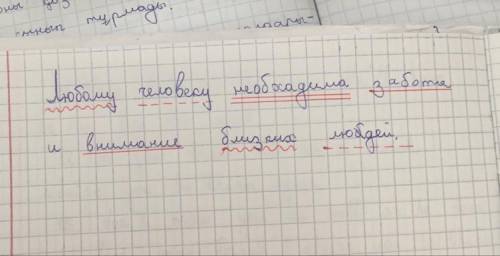 тұрмады.
Любому человеку необхадима забота
и внимание близких любдей.